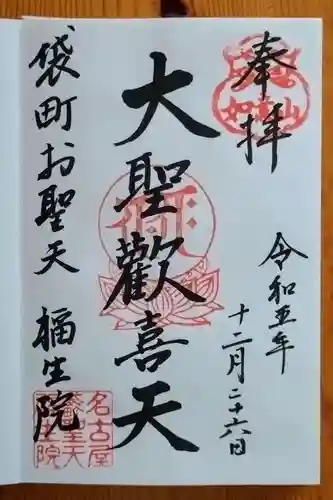 奉拝
令和五年
十二月二十六日
大聖歓喜天
袋町お聖天 福生院
名古屋
聖天
院